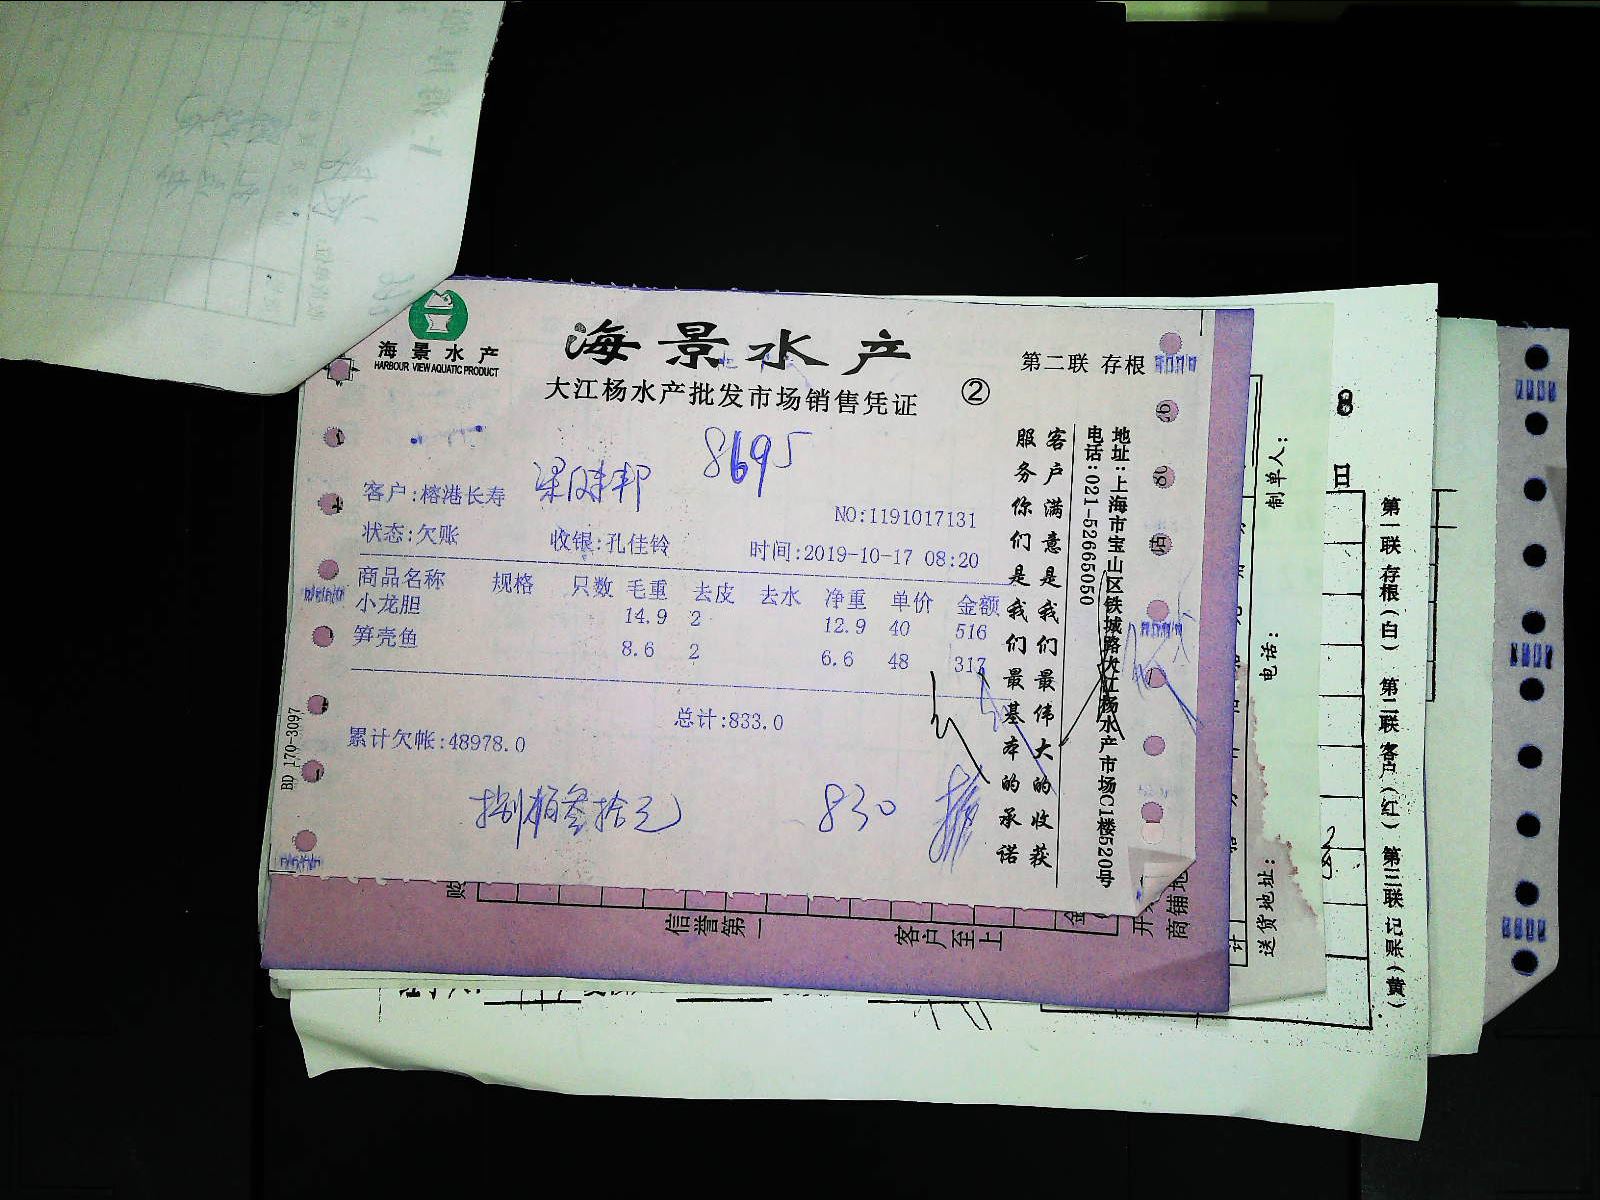 海景水产
HARBOUR VIEW AQUATIC PRODUCT
海景水产
第二联 存根
大江杨水产批发市场销售凭证 ②
8695
客户:榕港长寿
NO:1191017131
状态:欠账 收银:孔佳铃 时间:2019-10-17 08:20
商品名称 规格 只数 毛重 去皮 去水 净重 单价 金额
小龙胆 14.9 2 12.9 40 516
笋壳鱼 8.6 2 6.6 48 317
总计:833.0
累计欠帐:48978.0
捌佰叁拾元 830
客户满意是我们最伟大的收获
服务你们是我们最基本的承诺
地址:上海市宝山区铁城路大江杨水产市场C1楼520号
电话:021-52665050
BD 170-3097
信誉第一
客户至上
商铺地
制单人:
电话:
送货地址:
8
日
第一联存根(白) 第二联客户(红) 第三联记账(黄)